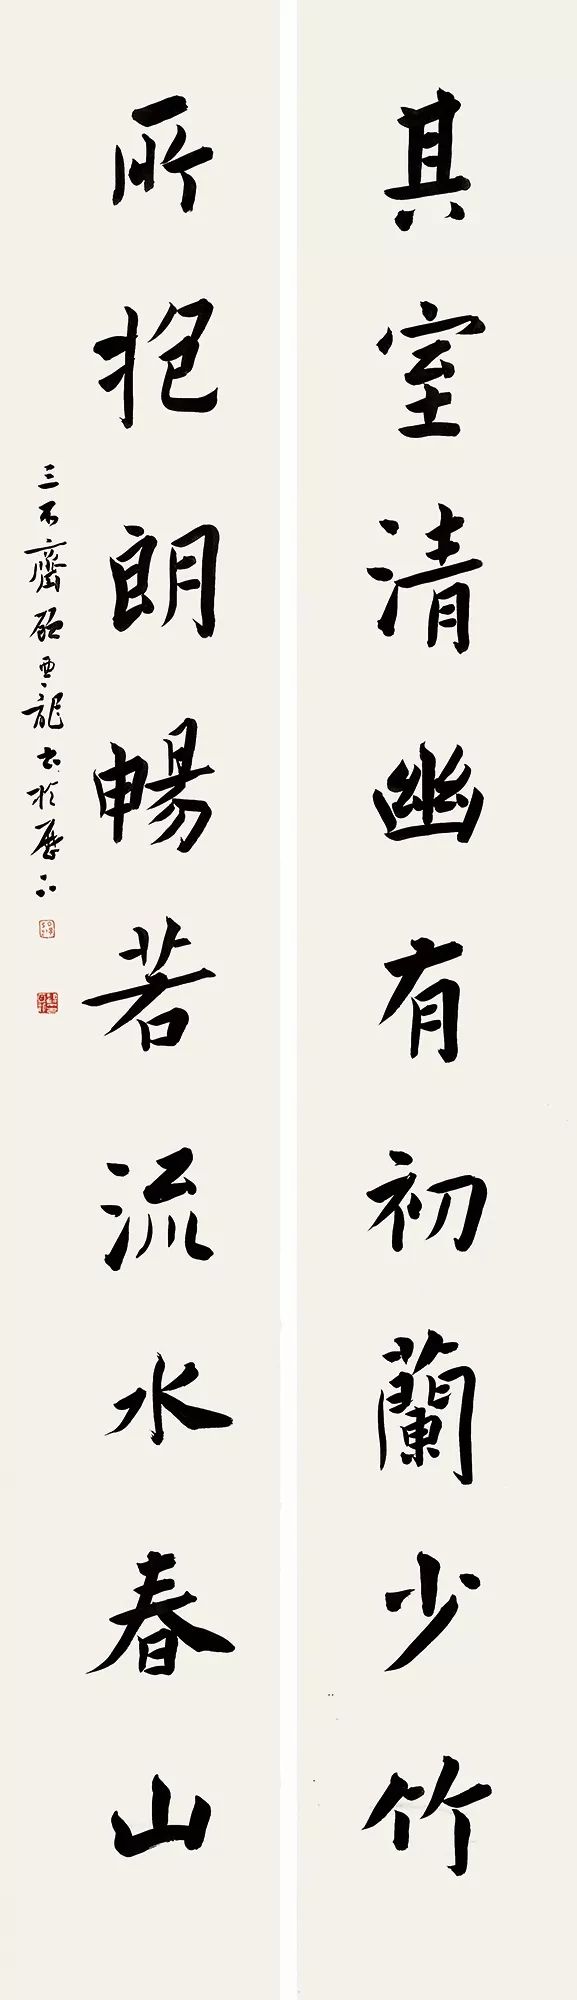 其室清幽有初蘭少竹
所抱朗暢若流水春山
三不齋 雲龍書於歷下